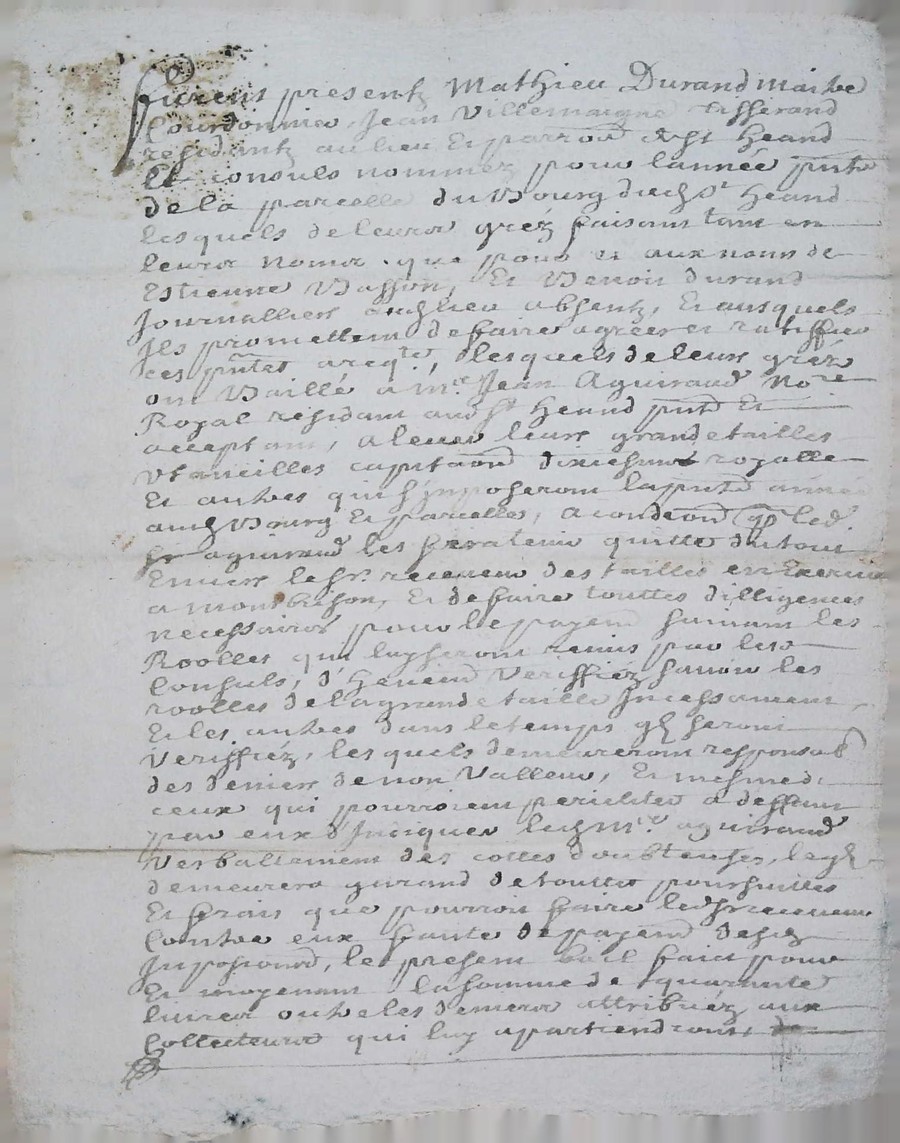 furent presentz Mathieu Durand maitre
Courdonnier, Jean Villemaigne tisserand
residentz au lieu et parroi de St Heand
Et consuls nommez pour l'année pnte
de la parcelle du Bourg dudt St Heand
lesquels de leurs gréz faisant tant en
leurs noms que pour et aux noms de
Estienne Basson, Et Benoit durand
Journalliers audt lieu absentz, Et ausquels
Ils promettent de faire agreer et ratiffier
ces pntes , lesquels de leur gréz
ont Baillé a me Jean Aguiraud Nore
Royal residant aud St Heand pnt Et
acceptant, a lever leurs grande tailles
Utancilles capitaon royalle
Et autres qui s'imposeront la pnte année
audt Bourg Et parcelles, a condeon que led
Sr aguiraud les fera tenir quitte du tout
Envers le Sr receveur des tailles en Exercice
a montbrison, Et de faire touttes dilligences
necessaires pour le payemt suivant les
Roolles qui luy seront remis par les
Consuls, Veriffiez savoir les
roolles de la grande taille Incessament,
Et les autres dans le temps qls seront
Veriffiéz, lesquels demeureront responsab
des deniers de non Valleur, Et mesme de
ceux qui pourroient pericliter a deffaut
par eux d'Indiquer audt me aguiraud
Verballement des cottes doubteuses, leql
demeurera garand de touttes poursuittes
Et frais que pourroit faire ledt Sr receveur
Contre eux faute de payemt desdt
Impositions, le present bail faict pour
Et moyenant la somme de quarante
livres outre les deniers attribuéz aux
Collecteurs qui luy apartiendront, de